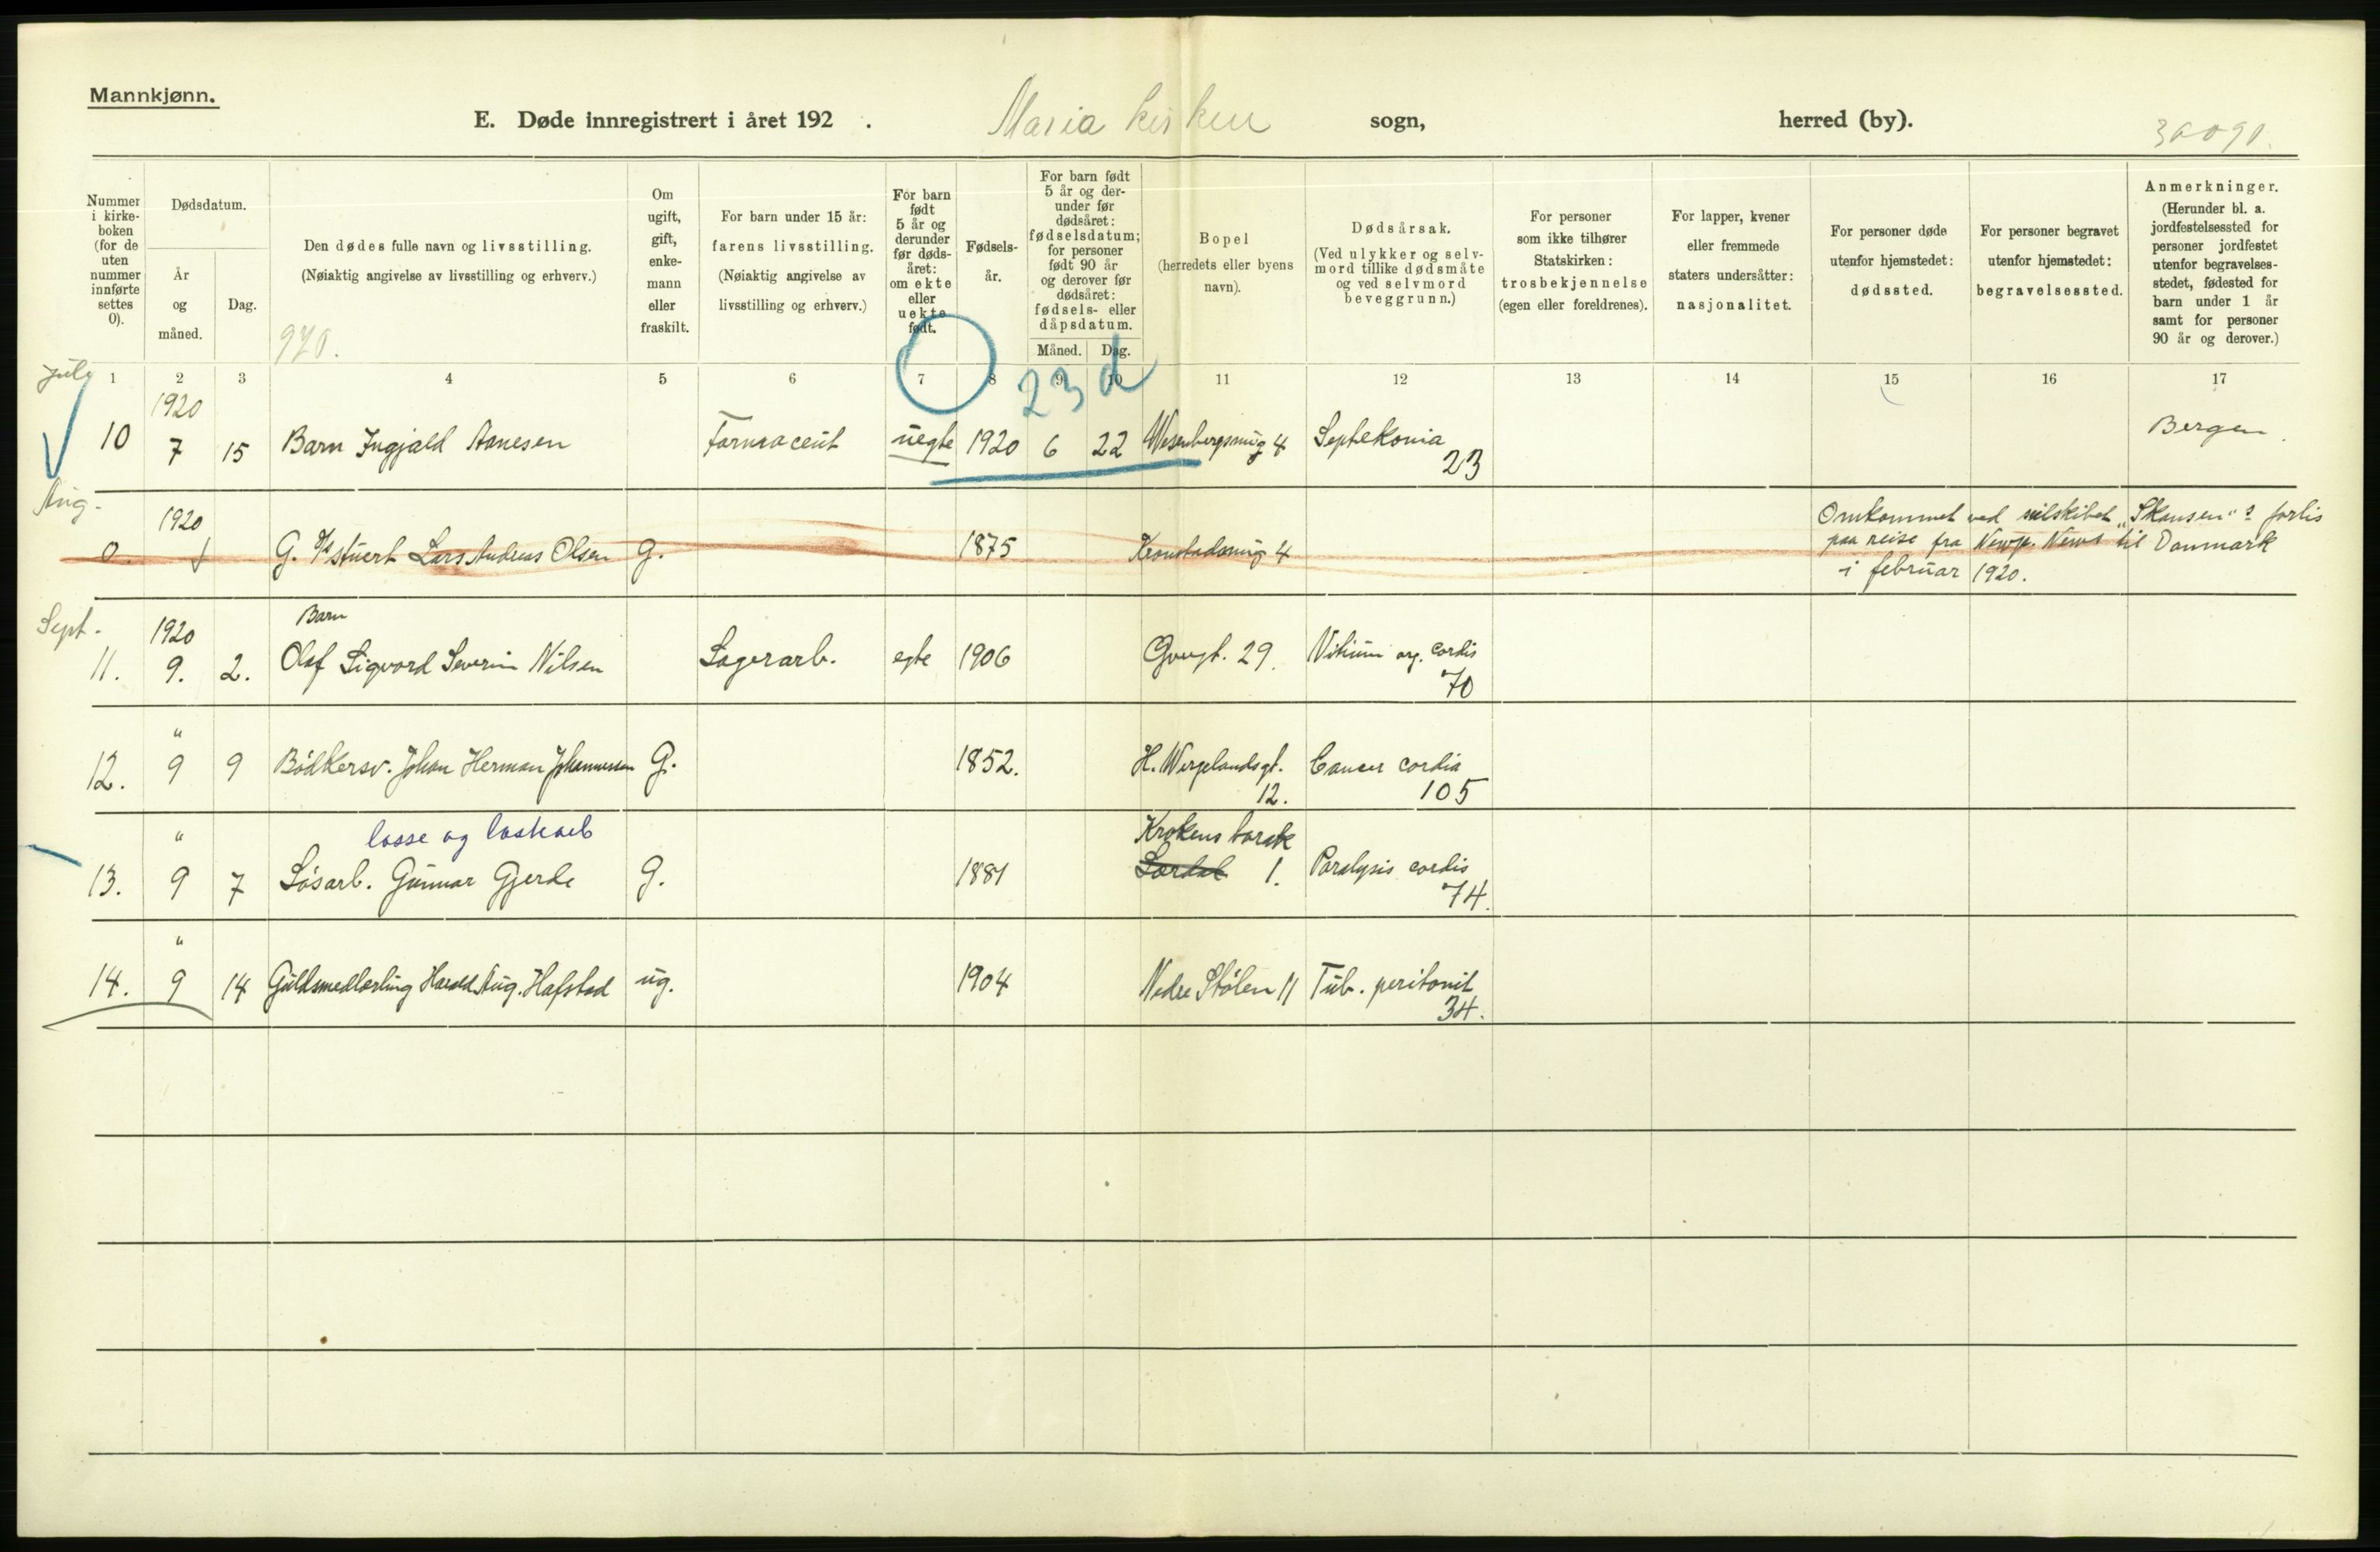 Mannkjønn.
E. Døde innregistrert i året 192 . Maria kirken sogn, herred (by).
Nummer i kirkeboken (for de uten nummer innførte settes 0).
Dødsdatum.
År og måned.
Dag.
Den dødes fulle navn og livsstilling.
(Nøiaktig angivelse av livsstilling og erhverv.)
970.
Om ugift, gift, enkemann eller fraskilt.
For barn under 15 år: farens livsstilling.
(Nøiaktig angivelse av livsstilling og erhverv.)
For barn født 5 år og derunder før dødsåret: om ekte eller uekte født.
Fødselsår.
For barn født 5 år og derunder før dødsåret: fødselsdatum; for personer født 90 år og derover før dødsåret: fødsels- eller dåpsdatum.
Måned. Dag.
Bopel
(herredets eller byens navn).
Dødsårsak.
(Ved ulykker og selvmord tillike dødsmåte og ved selvmord beveggrunn.)
For personer som ikke tilhører Statskirken: trosbekjennelse
(egen eller foreldrenes).
For lapper, kvener eller fremmede staters undersåtter: nasjonalitet.
For personer døde utenfor hjemstedet: dødssted.
For personer begravet utenfor hjemstedet: begravelsessted.
Anmerkninger.
(Herunder bl. a. jordfestelsessted for personer jordfestet utenfor begravelsesstedet, fødested for barn under 1 år samt for personer 90 år og derover.)
1 2 3 4 5 6 7 8 9 10 11 12 13 14 15 16 17
23 d
July
1920
10 7 15 Barn Ingjald Aanesen Farmaceut uegte 1920 6 22 Wesenbergsmug 4 Septekonia Bergen.
23
Aug.
1920
0 G. Stuert Lars Andreas Olsen G. 1875 Kronstadsmug 4
Omkommet ved seilskibet "Skansen"s forlis
paa reise fra Newp. News til Danmark
i februar 1920.
Sept.
1920 Barn
11. 9. 2. Olaf Sigvard Severin Nilsen Lagerarb. egte 1906 29. Vitium org. cordis
70
"
12. 9 9 Bødkersv. Johan Herman Johannessen G. 1852. H. Wergelandsgt. 12. Cancer cordia
105
" losse og lastearb
13. 9 7 Løsarb. Gunnar Gjerde G. 1881 Krokens 1. Paralysis cordis
74.
"
14. 9 14 Guldsmedlærling Harald Aug. Hafstad ug. 1904 Nedre Stølen 11 Tub. peritonit
34.